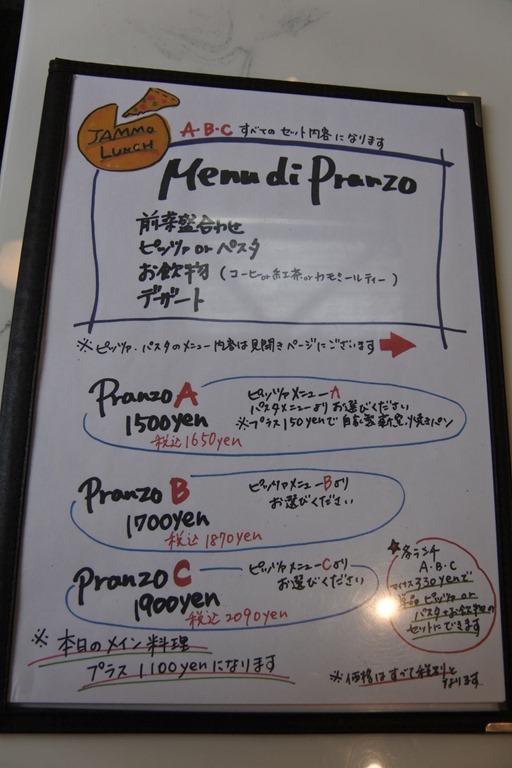 JAMMO
LUNCH
A・B・C すべてのセット内容になります
Menu di Pranzo
前菜盛合わせ
ピッツァ or パスタ
お飲物（コーヒー or 紅茶 or カモミールティー）
デザート
※ピッツァ・パスタのメニュー内容は見開きページにございます
Pranzo A
1500yen
税込1650yen
ピッツァメニューA
パスタメニューよりお選びください
※プラス150yenで自家製薪窯焼きパン
Pranzo B
1700yen
税込1870yen
ピッツァメニューBより
お選びください
Pranzo C
1900yen
税込2090yen
ピッツァメニューCより
お選びください
★各ランチ
A・B・C
マイナス330yenで
単品ピッツァ or
パスタ+お飲物の
セットにできます
※本日のメイン料理
プラス1100yenになります
※価格はすべて税別と
なります